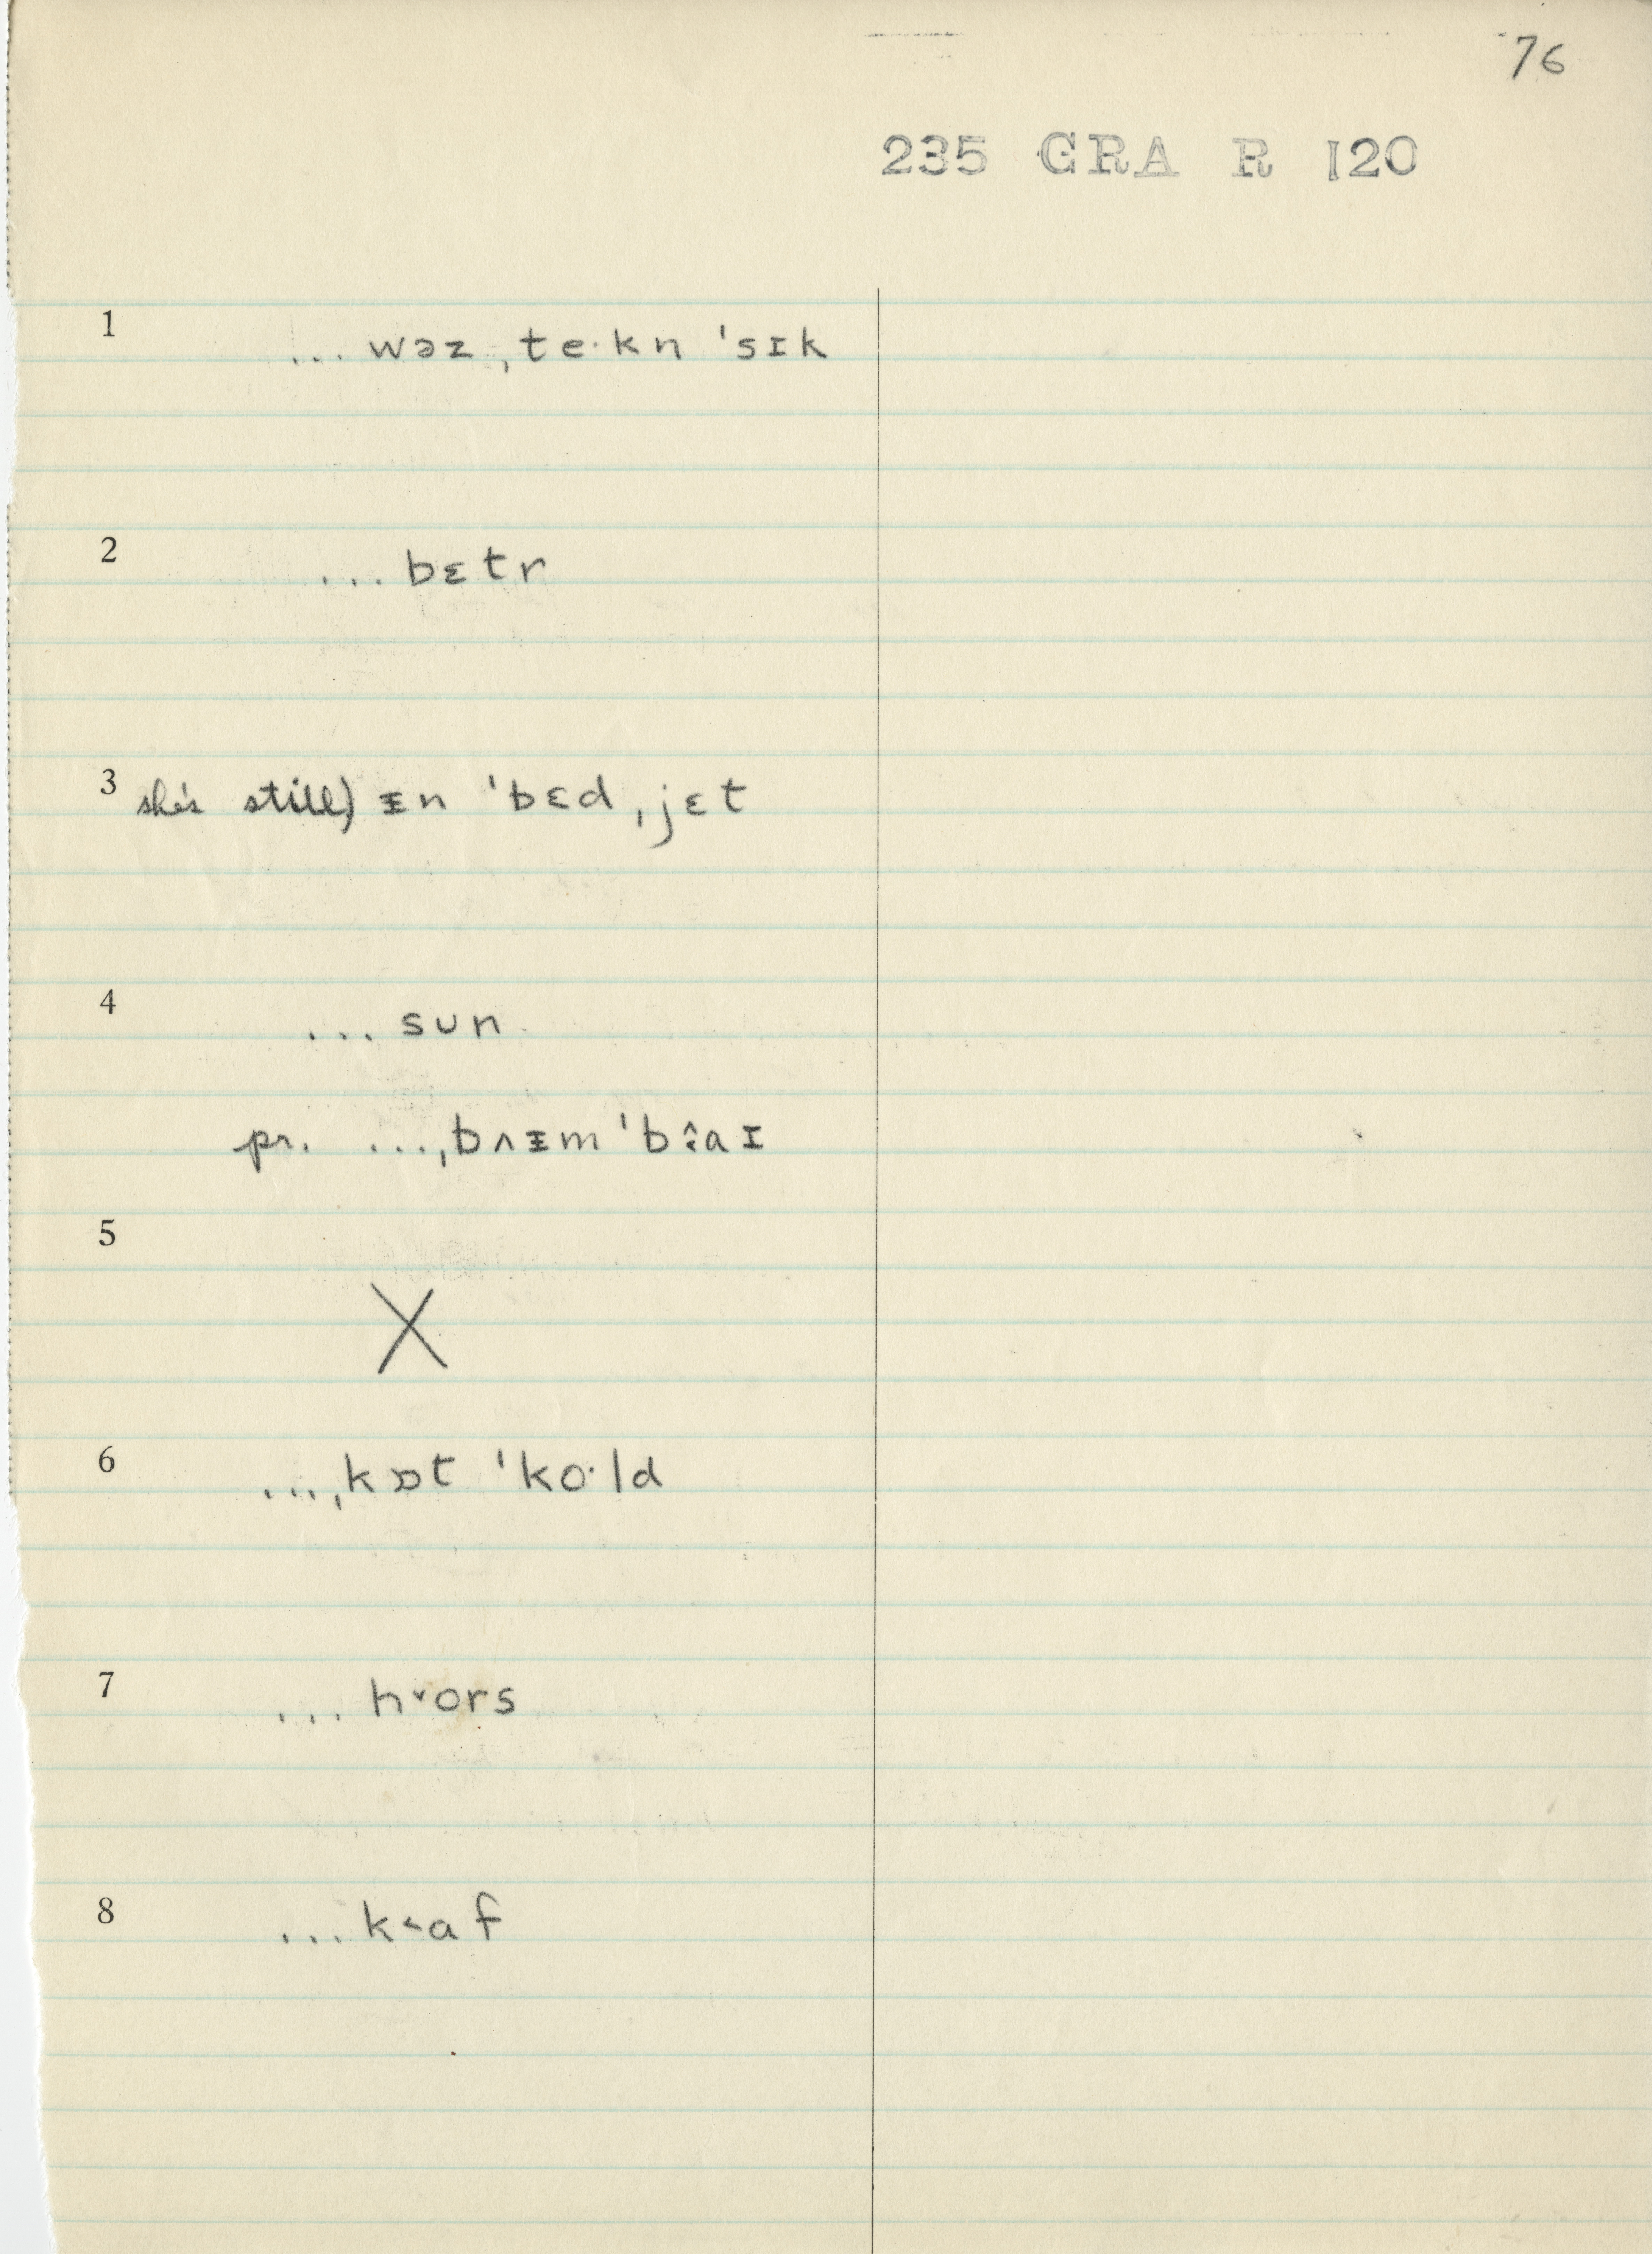 76
235 GRA R 120
1 ... wəz ˌte·kn ˈsɪk
2 ... bɛtr
3 she's still) ᵻn ˈbɛd ˌjɛt
4 ... sun
pr. ...ˌbʌᵻm ˈb
5
X
6 ...ˌkɒt ˈko·ld
7 ... h˅ors
8 ... k˂af